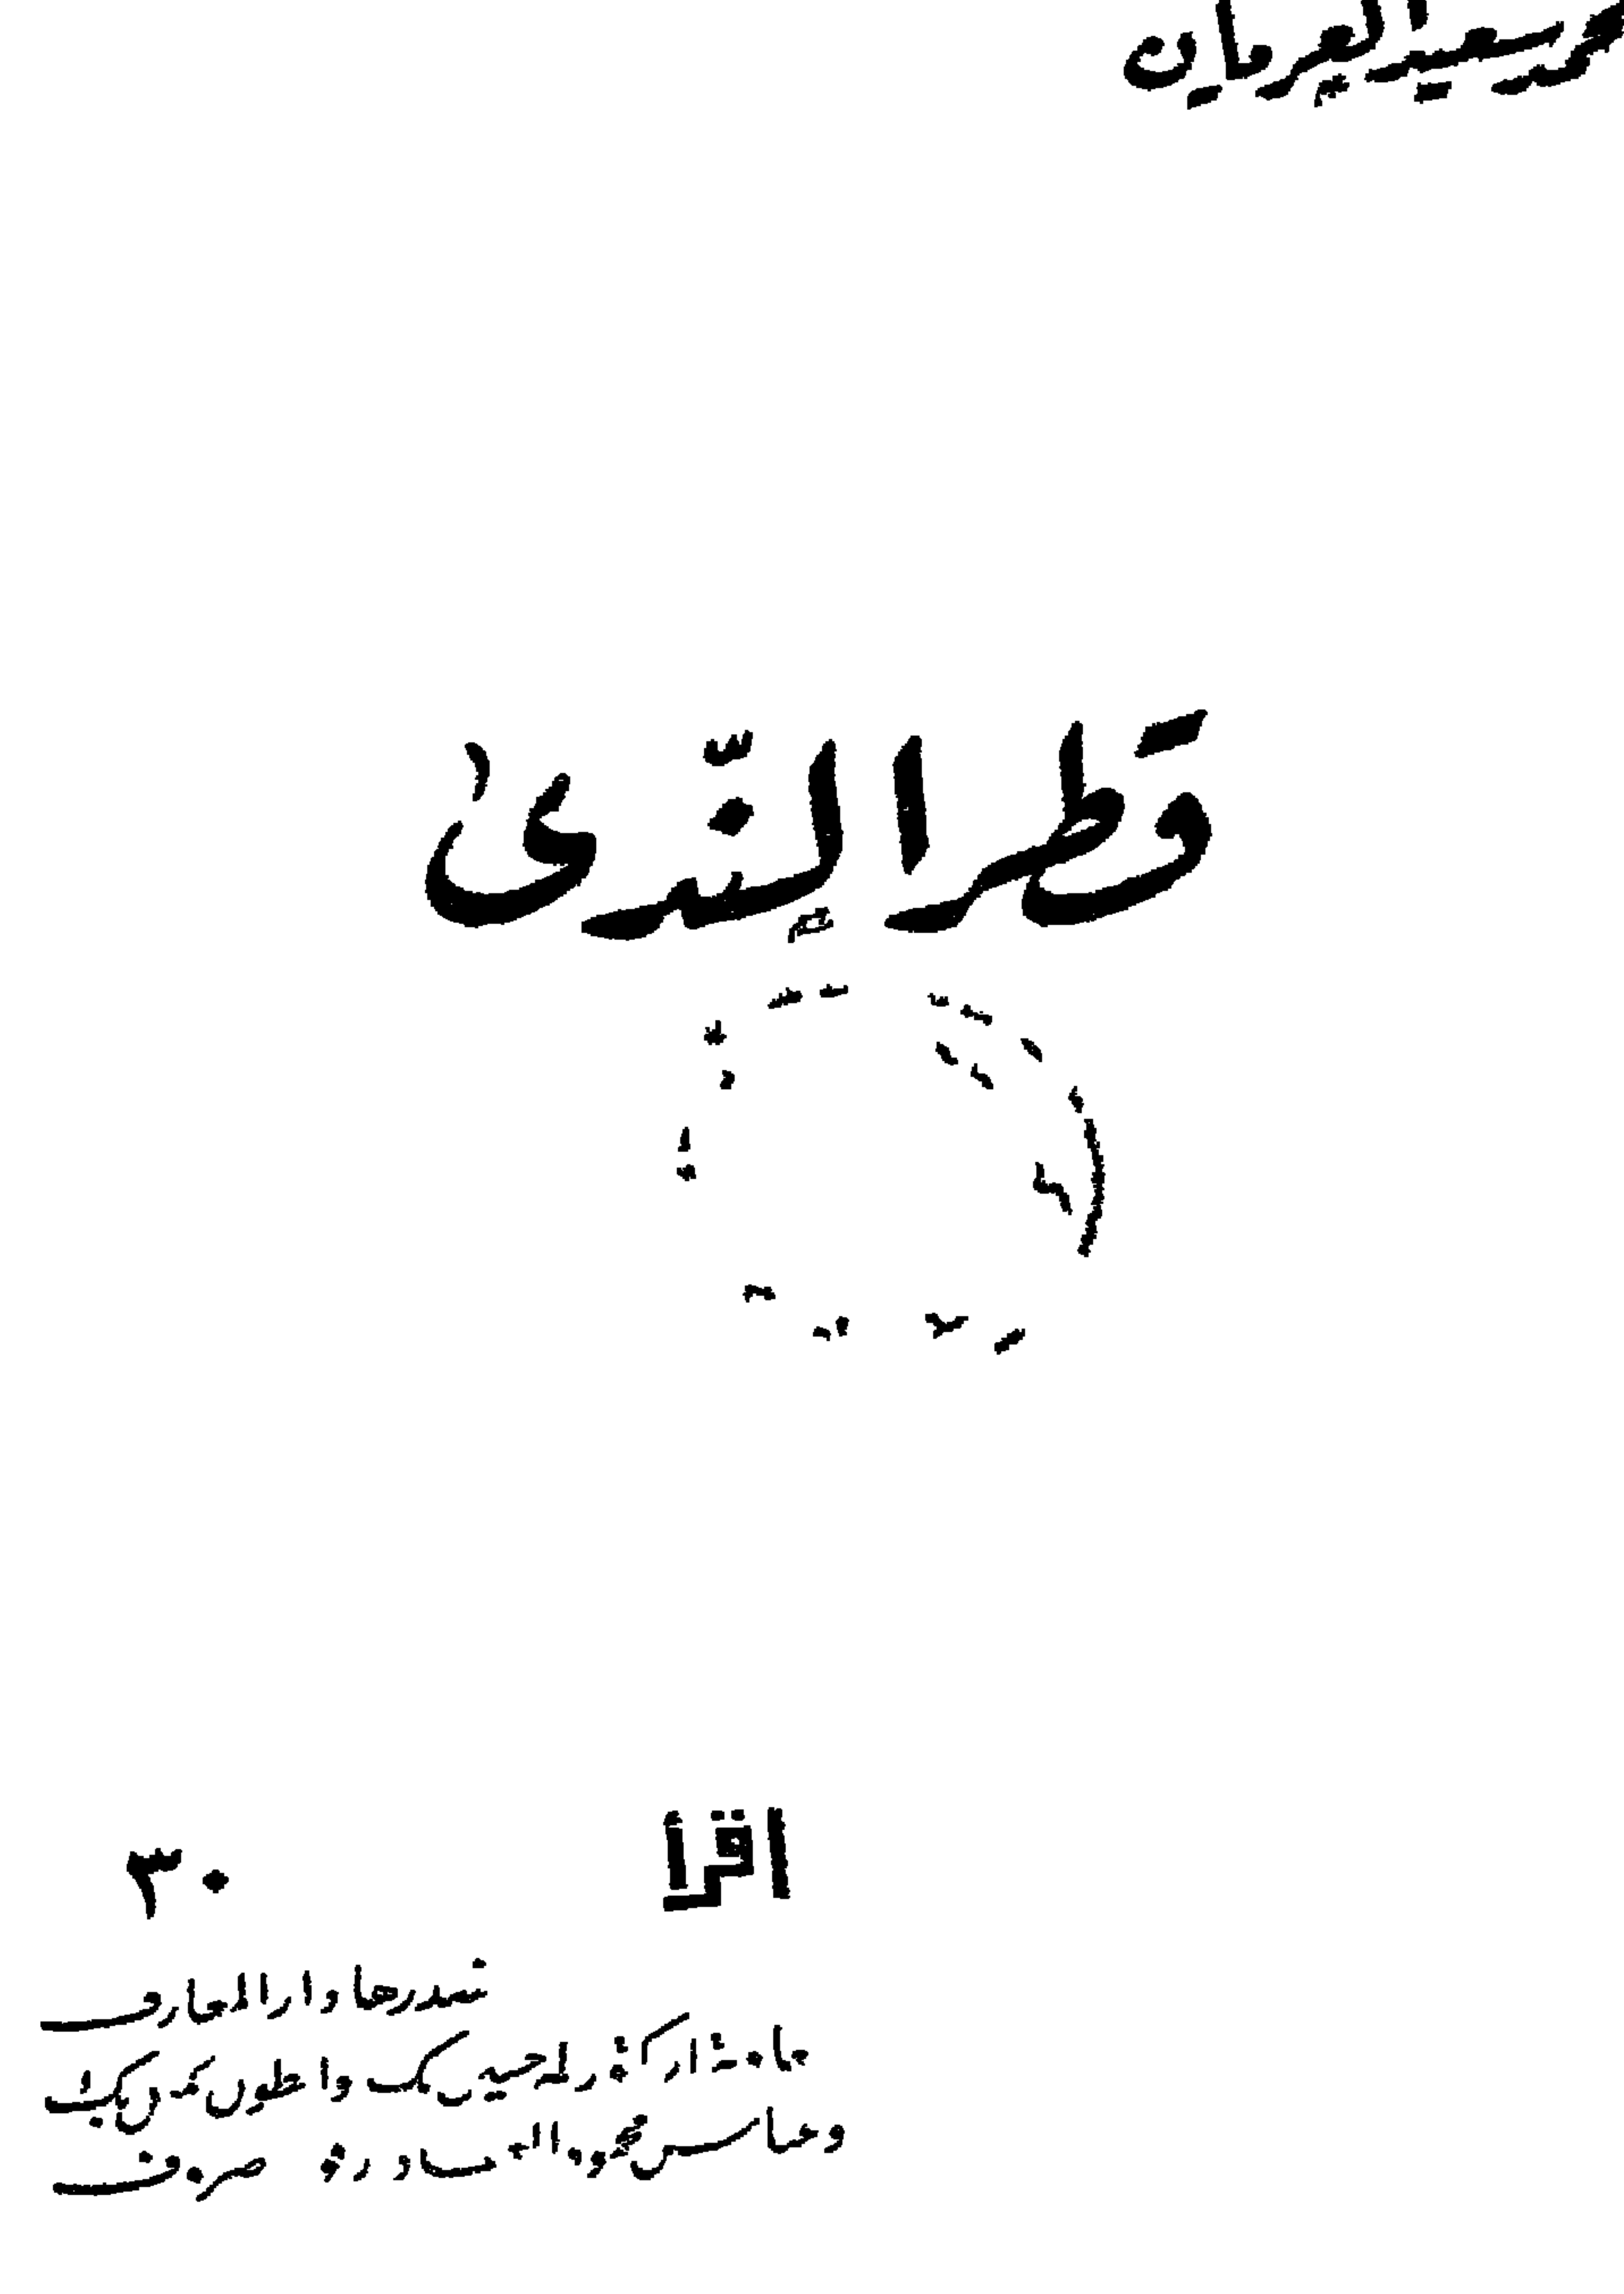 محمد سعيد العريان
قطر الندى
اقرأ
٣٠
تصدرها دار المعارف
طه حسين بك وانطون بك
وعباس محمود العقاد وفؤاد صروف